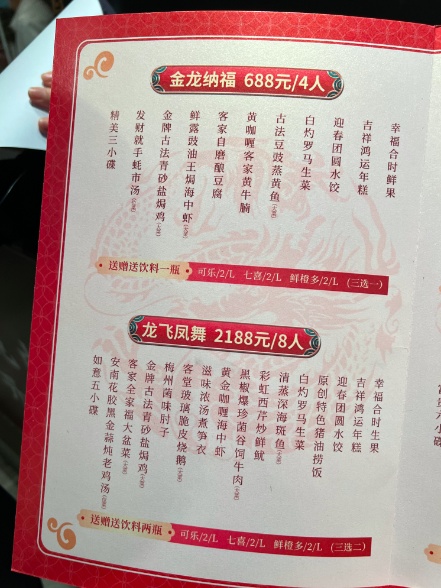 金龙纳福 688元/4人
精美三小碟
发财就手蚝市汤
金牌古法青砂盐焗鸡
鲜露豉油王焗海中虾
客家自磨酿豆腐
黄咖喱客家黄牛腩
古法豆豉蒸黄鱼
白灼罗马生菜
迎春团圆水饺
吉祥鸿运年糕
幸福合时鲜果
送赠送饮料一瓶 可乐/2/L 七喜/2/L 鲜橙多/2/L (三选一)
龙飞凤舞 2188元/8人
如意五小碟
安南花胶黑金蒜炖老鸡汤
客家全家福大盆菜
金牌古法青砂盐焗鸡
梅州菌味肘子
客堂玻璃脆皮烧鹅
滋味浓汤煮笋衣
黄金咖喱海中虾
黑椒爆珍菌谷饲牛肉
彩虹西芹炒鲜鱿
清蒸深海斑鱼
白灼罗马生菜
原创特色猪油捞饭
迎春团圆水饺
吉祥鸿运年糕
幸福合时生果
送赠送饮料两瓶 可乐/2/L 七喜/2/L 鲜橙多/2/L (三选二)